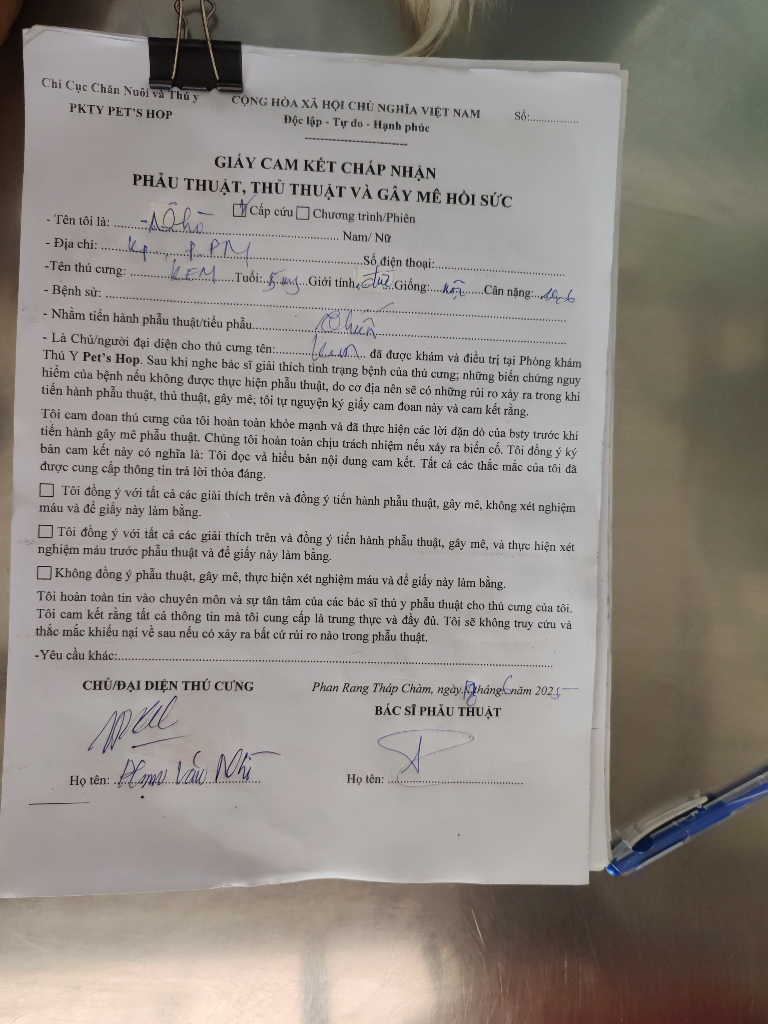 Chi Cục Chăn Nuôi và Thú y
PKTY PET'S HOP
CỘNG HÒA XÃ HỘI CHỦ NGHĨA VIỆT NAM
Độc lập - Tự do - Hạnh phúc
Số:................
GIẤY CAM KẾT CHẤP NHẬN
PHẪU THUẬT, THỦ THUẬT VÀ GÂY MÊ HỒI SỨC
Cấp cứu Chương trình/Phiên
- Tên tôi là: Nam/ Nữ
- Địa chỉ: Kp P. PM Số điện thoại:
-Tên thú cưng: KEM Tuổi: Giới tính: đực Giống: Cân nặng:
- Bệnh sử:
- Nhằm tiến hành phẫu thuật/tiểu phẫu
- Là Chủ/người đại diện cho thú cưng tên: Kem đã được khám và điều trị tại Phòng khám
Thú Y Pet's Hop. Sau khi nghe bác sĩ giải thích tình trạng bệnh của thú cưng; những biến chứng nguy
hiểm của bệnh nếu không được thực hiện phẫu thuật, do cơ địa nên sẽ có những rủi ro xảy ra trong khi
tiến hành phẫu thuật, thủ thuật, gây mê; tôi tự nguyện ký giấy cam đoan này và cam kết rằng.
Tôi cam đoan thú cưng của tôi hoàn toàn khỏe mạnh và đã thực hiện các lời dặn dò của bsty trước khi
tiến hành gây mê phẫu thuật. Chúng tôi hoàn toàn chịu trách nhiệm nếu xảy ra biến cố. Tôi đồng ý ký
bản cam kết này có nghĩa là: Tôi đọc và hiểu bản nội dung cam kết. Tất cả các thắc mắc của tôi đã
được cung cấp thông tin trả lời thỏa đáng.
Tôi đồng ý với tất cả các giải thích trên và đồng ý tiến hành phẫu thuật, gây mê, không xét nghiệm
máu và để giấy này làm bằng.
Tôi đồng ý với tất cả các giải thích trên và đồng ý tiến hành phẫu thuật, gây mê, và thực hiện xét
nghiệm máu trước phẫu thuật và để giấy này làm bằng.
Không đồng ý phẫu thuật, gây mê, thực hiện xét nghiệm máu và để giấy này làm bằng.
Tôi hoàn toàn tin vào chuyên môn và sự tân tâm của các bác sĩ thú y phẫu thuật cho thú cưng của tôi.
Tôi cam kết rằng tất cả thông tin mà tôi cung cấp là trung thực và đầy đủ. Tôi sẽ không truy cứu và
thắc mắc khiếu nại về sau nếu có xảy ra bất cứ rủi ro nào trong phẫu thuật.
-Yêu cầu khác:
CHỦ/ĐẠI DIỆN THÚ CƯNG
Phan Rang Tháp Chàm, ngày tháng 6 năm 2025
BÁC SĨ PHẪU THUẬT
Họ tên: Văn Nhi
Họ tên: